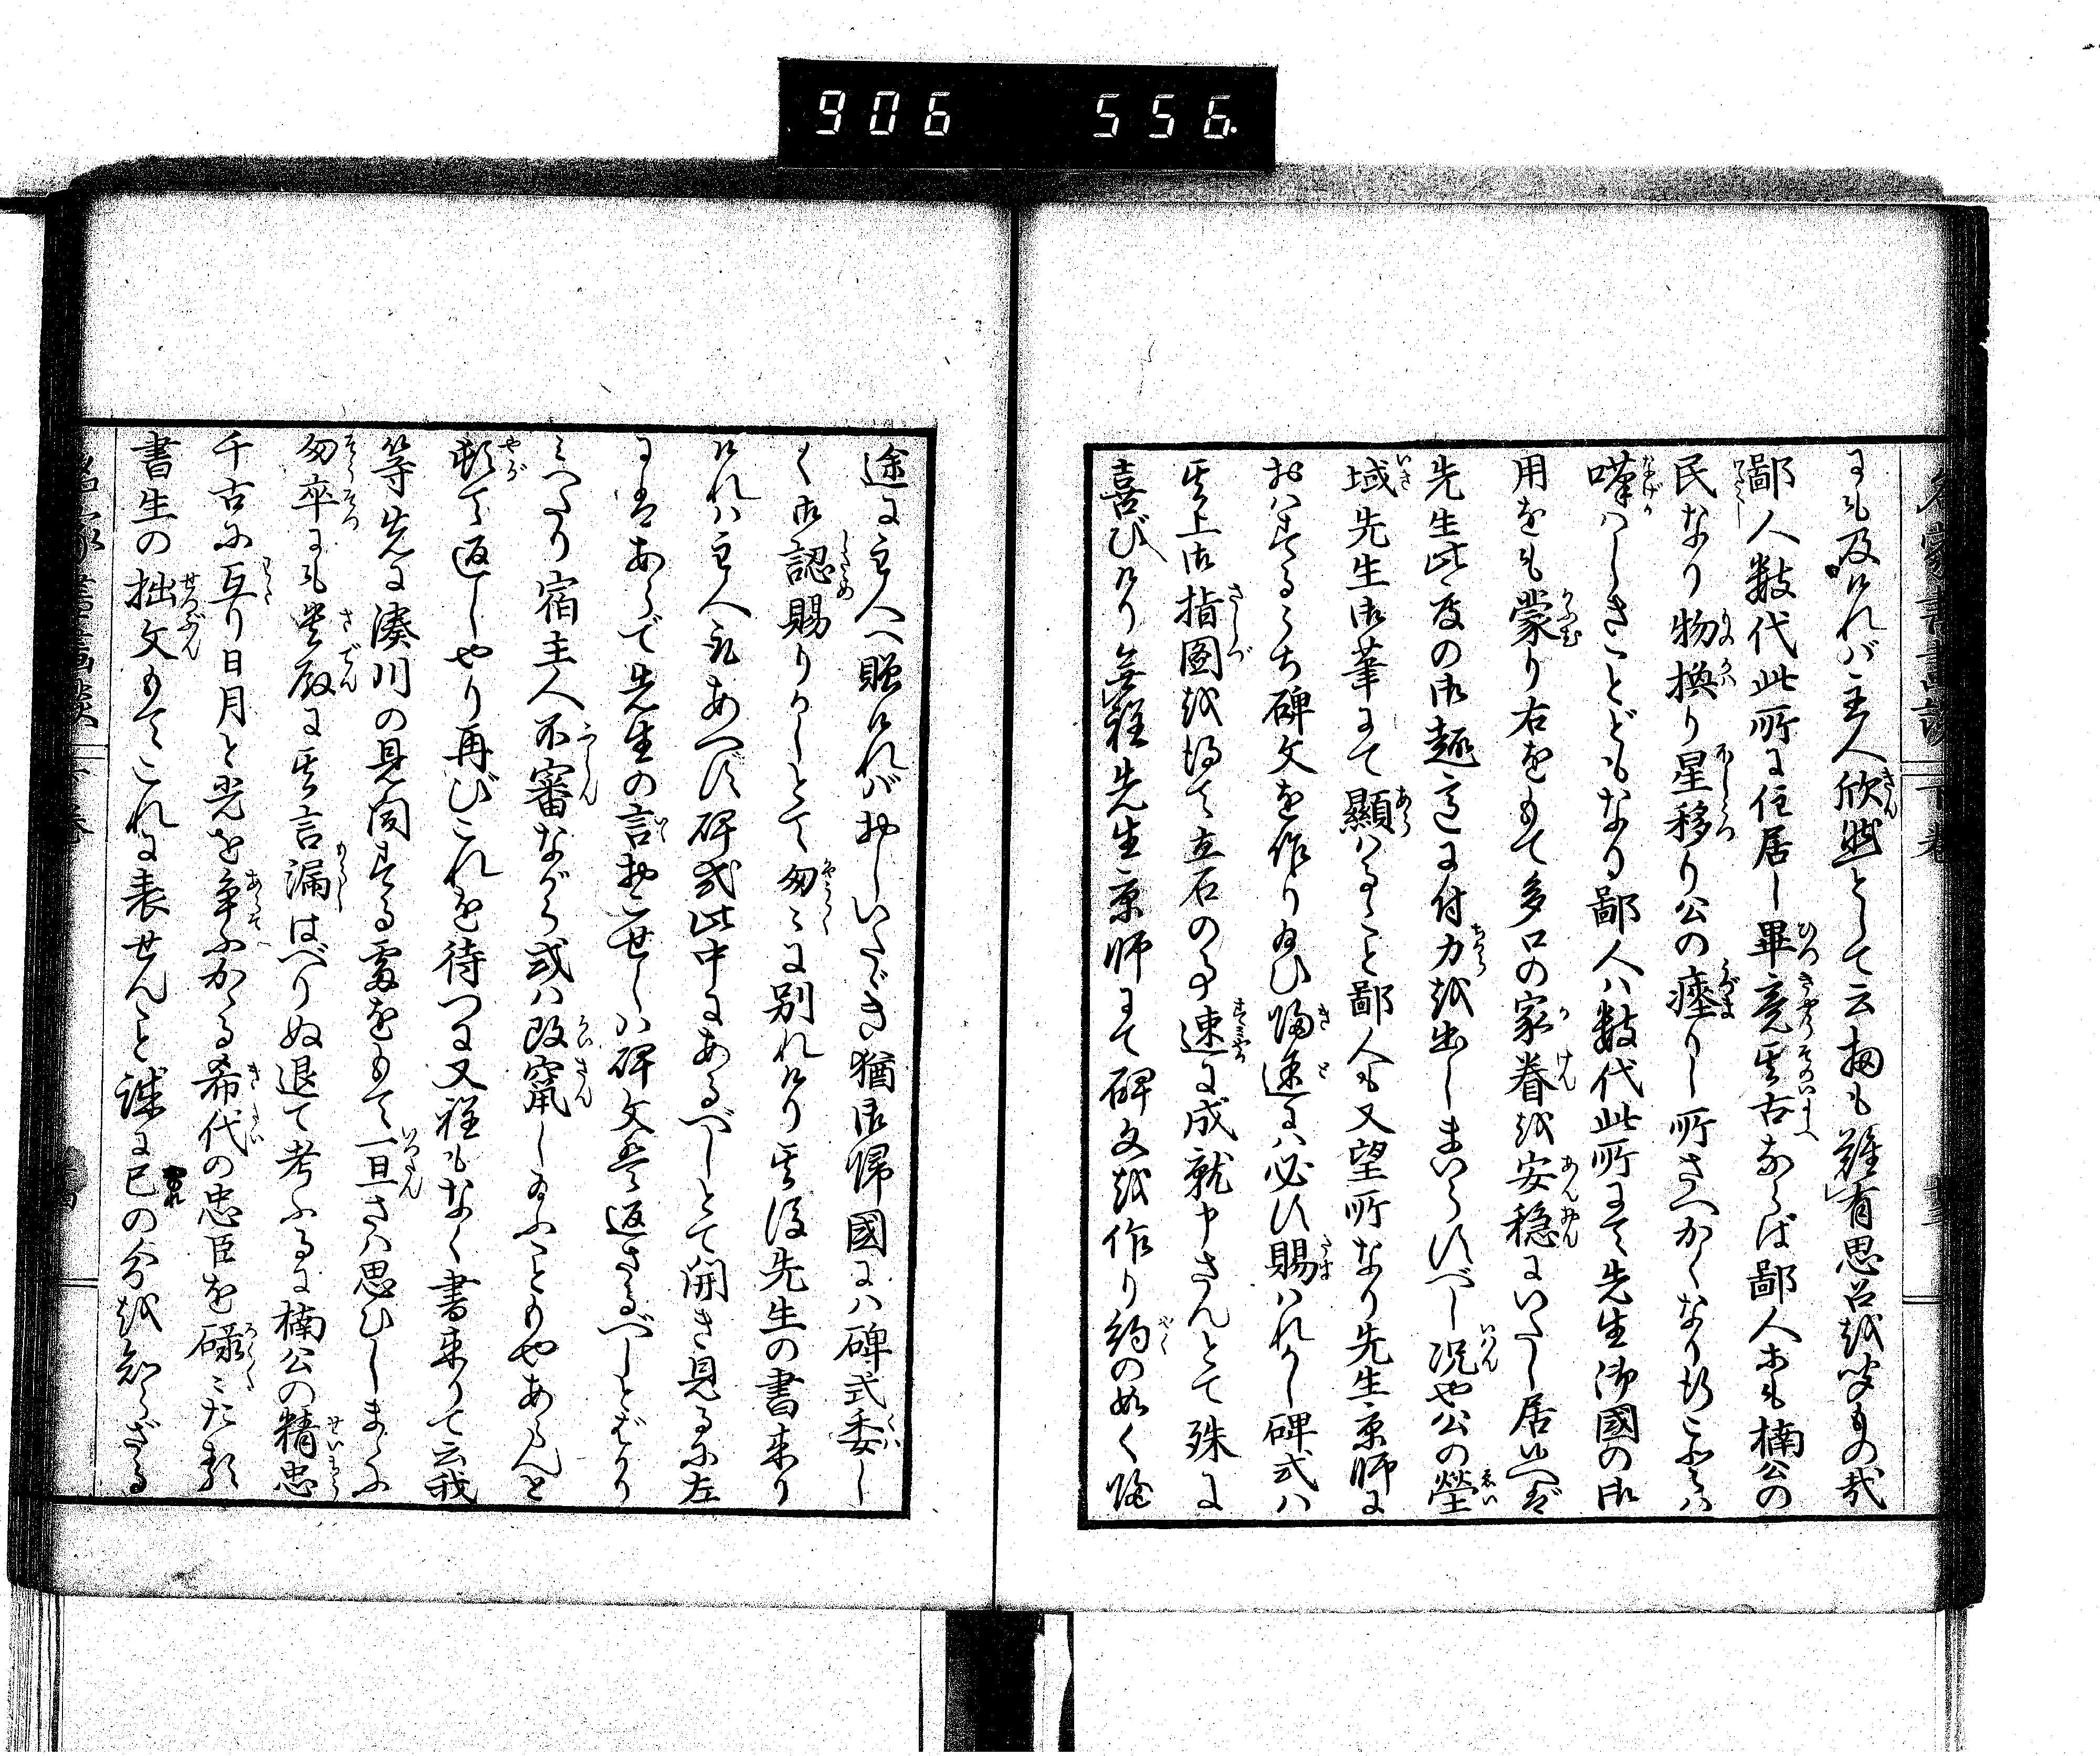 906 556.
名家書畫談 下卷
にも及ければ主人欣然として云扨も難有思召を聞もの哉
鄙人數代此所に住居し畢竟其古ならば鄙人等も楠公の
民なり物換り星移り公の瘞りし所さへかくなり行こと
嘆はしきことどもなり鄙人ハ數代此所にて先生御國の御
用をも蒙り右をもて多口の家眷を安穩にいたし居
先生此度の御趣意に付力を出しまいらすべし况や公の塋
域先生御筆にて顯はるゝこと鄙人も又望所なり先生京師に
おはするうち碑文を作り給ひ歸途にハ必ず賜はれかし碑式ハ
其上御指圖を得て立石の事速に成就申さんとて殊に
喜びけり無程先生京師にて碑文を作り約の如く歸
途に主人へ贈ければおしいたゞき猶御歸國にハ碑式委し
く御認賜りかしとて匆々に別れけり其後先生の書來り
けれハ主人取あへず碑式此中にあるべしとて開き見るに左
にはあらで先生の言おこせしハ碑文を返さるべしとばかり
こへたり宿主人不審ながら或ハ改竄し給ふこともやあらんと
頓て返しやり再びこれを待つに又程もなく書來りて云我
等先に湊川の見聞する處をもて一旦さハ思ひしまゝに
匆卒にも貴殿に其言漏はべりぬ退て考ふるに楠公の精忠
千古に亙り日月と光を爭ふかゝる希代の忠臣を碌々たる
書生の拙文もてこれに表せんと誠に己の分を知らざる